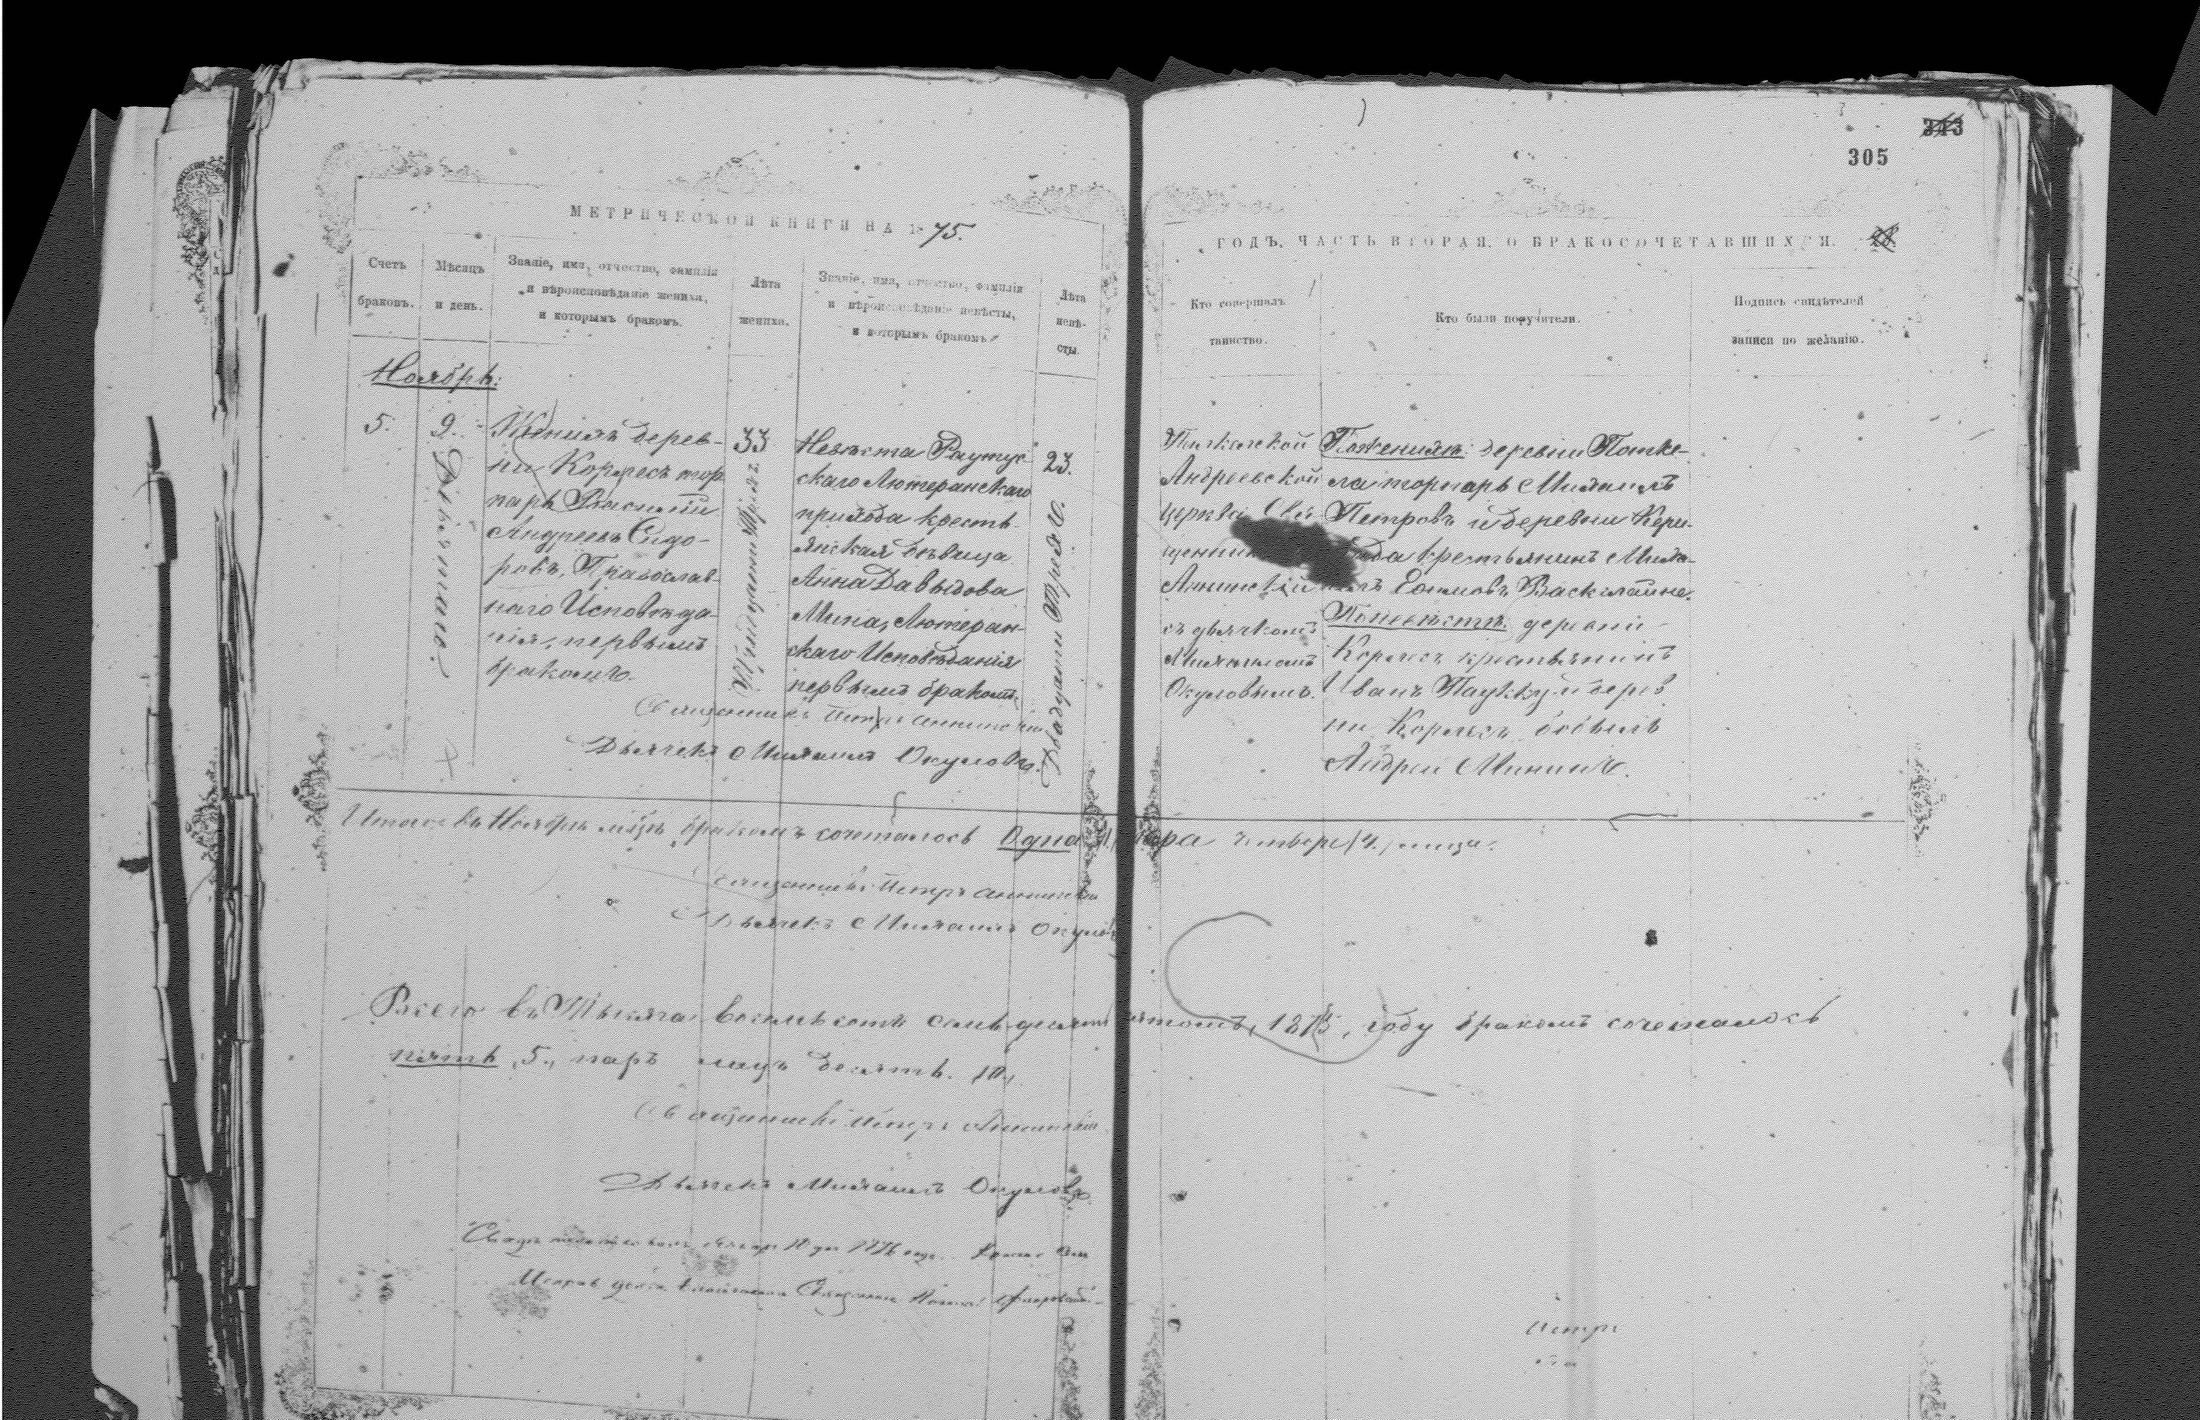 343
305
МЕТРИЧЕСКОЙ КНИГИ НА 1875.
ГОДЪ, ЧАСТЬ ВТОРАЯ, О БРАКОСОЧЕТАВШИХСЯ.
Счетъ
браковъ.
Мѣсяцъ
и день.
Званіе, имя, отчество, фамилія
и вѣроисповѣданіе жениха,
и которымъ бракомъ.
Лѣта
жениха.
Званіе, имя, отчество, фамилія
и вѣроисповѣданіе невѣсты,
и которымъ бракомъ
Лѣта
невѣ-
сты
Кто совершалъ
таинство.
Кто были поручители.
Подпись свидѣтелей
записи по желанію.
Ноябрь:
5.
9.
Девятаго.
Женихъ дерев-
ни Корлесъ тор
парь Василій
Андреевъ Сидо-
ровъ, Православ-
наго Исповѣда-
нія, первымъ
бракомъ.
33
Тридцати Трехъ
Невѣста Раутус
скаго Лютеранскаго
прихода кресть-
янская дѣвица
Анна Давыдова
Мина, Лютеран-
скаго Исповѣданія
первымъ бракомъ.
23.
Двадцати Трехъ.
Священникъ Петръ
Дьячекъ Михаилъ Окуловъ.
Андреевской
церкви Свя
щенник
съ дьячкомъ
Михаиломъ
Окуловымъ.
По женихѣ: деревни Потке-
ла торпарь Михаилъ
Петровъ и деревни Кери-
крестьянинъ Миха-
илъ
По невѣстѣ: деревни
Корлесъ крестьянинъ
Иванъ Паукку и дерев
ни Корлесъ бобыль
Андрей Мининъ.
Итого въ Ноябрѣ мѣсяцѣ бракомъ сочеталось Одна /1/ пара
Священникъ Петръ
Дьячекъ Михаилъ Окуловъ
Всего въ Тысяча восемьсотъ семьдесятъ пятомъ, 1875, году бракомъ сочеталось
пять, 5, паръ лицъ десять. /10/
Священникъ Петръ
Дьячекъ Михаилъ Окуловъ
Петръ